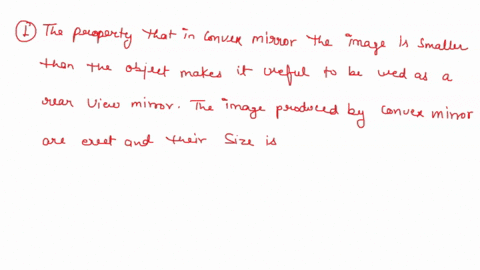 ① The peroperty that in Convex mirror the image is smaller
then the object makes it useful to be used as a
rear view mirror. The image produced by Convex mirror
are erect and their Size is